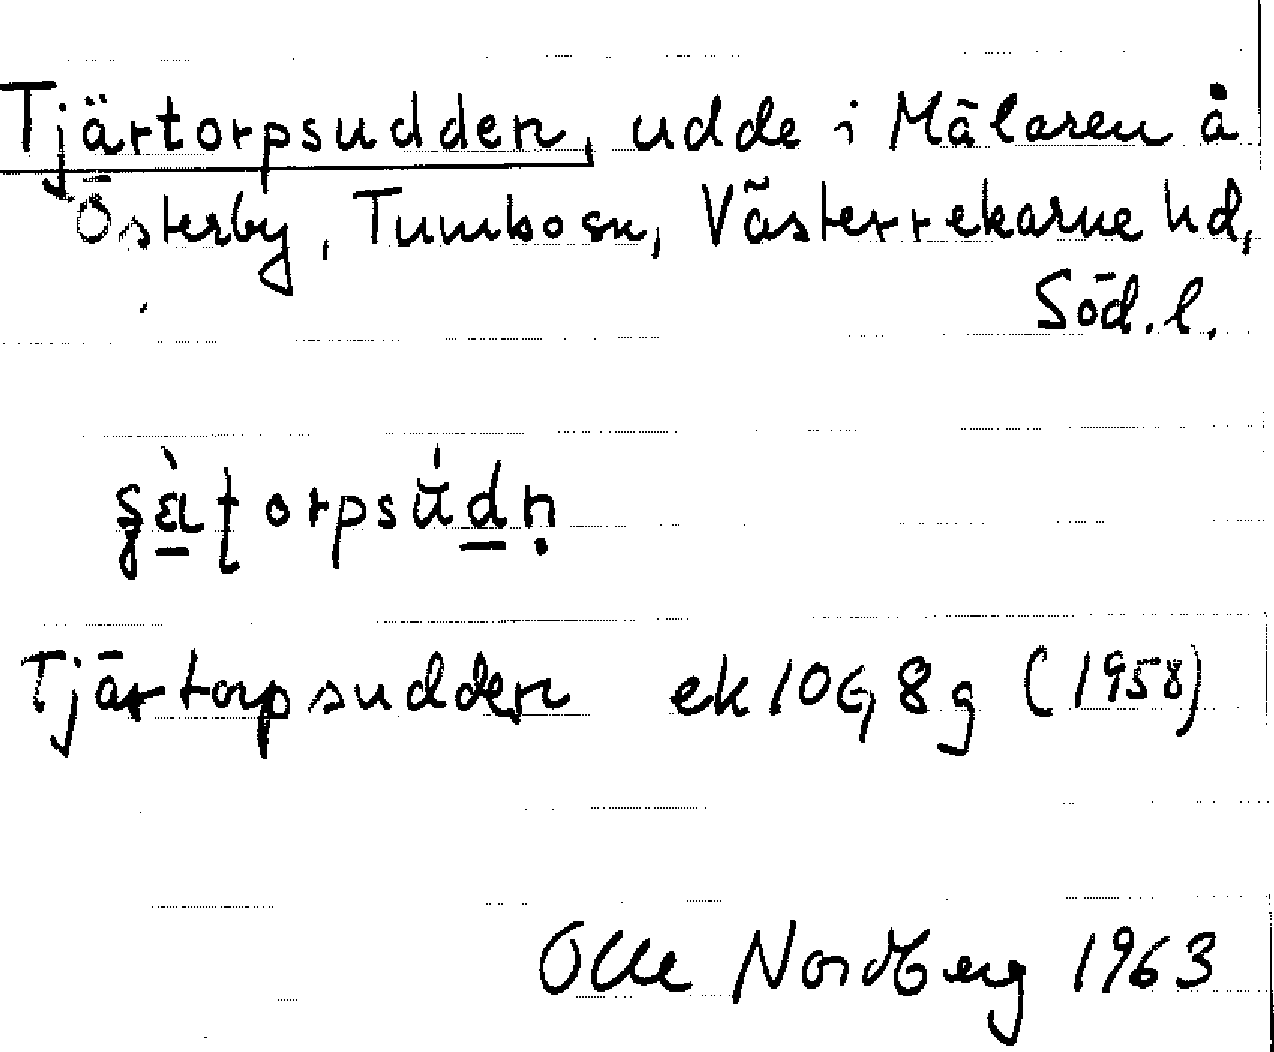 Tjärtorpsudden, udde i Mälaren å
Österby, Tumbo sn, Västerrekarne hd,
Söd. l.
Tjärtorpsudden ek 10G,8g (1958)
Olle Nordberg 1963